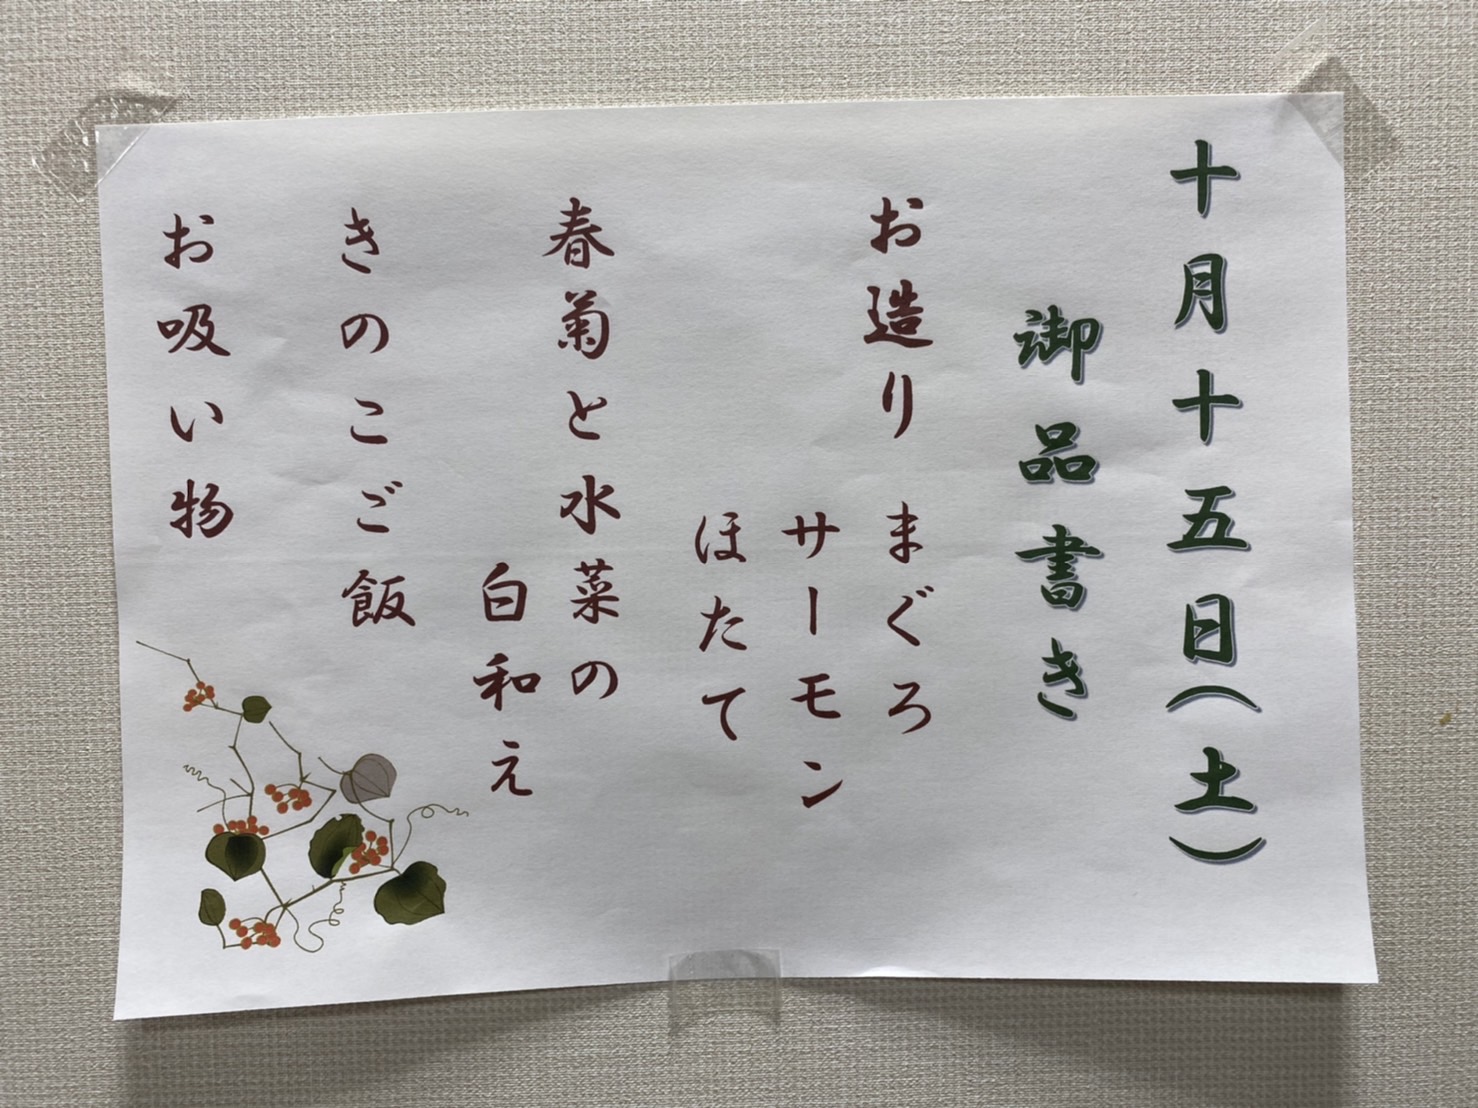 十月十五日(土)
御品書き
お造り まぐろ
サーモン
ほたて
春菊と水菜の
白和え
きのこご飯
お吸い物